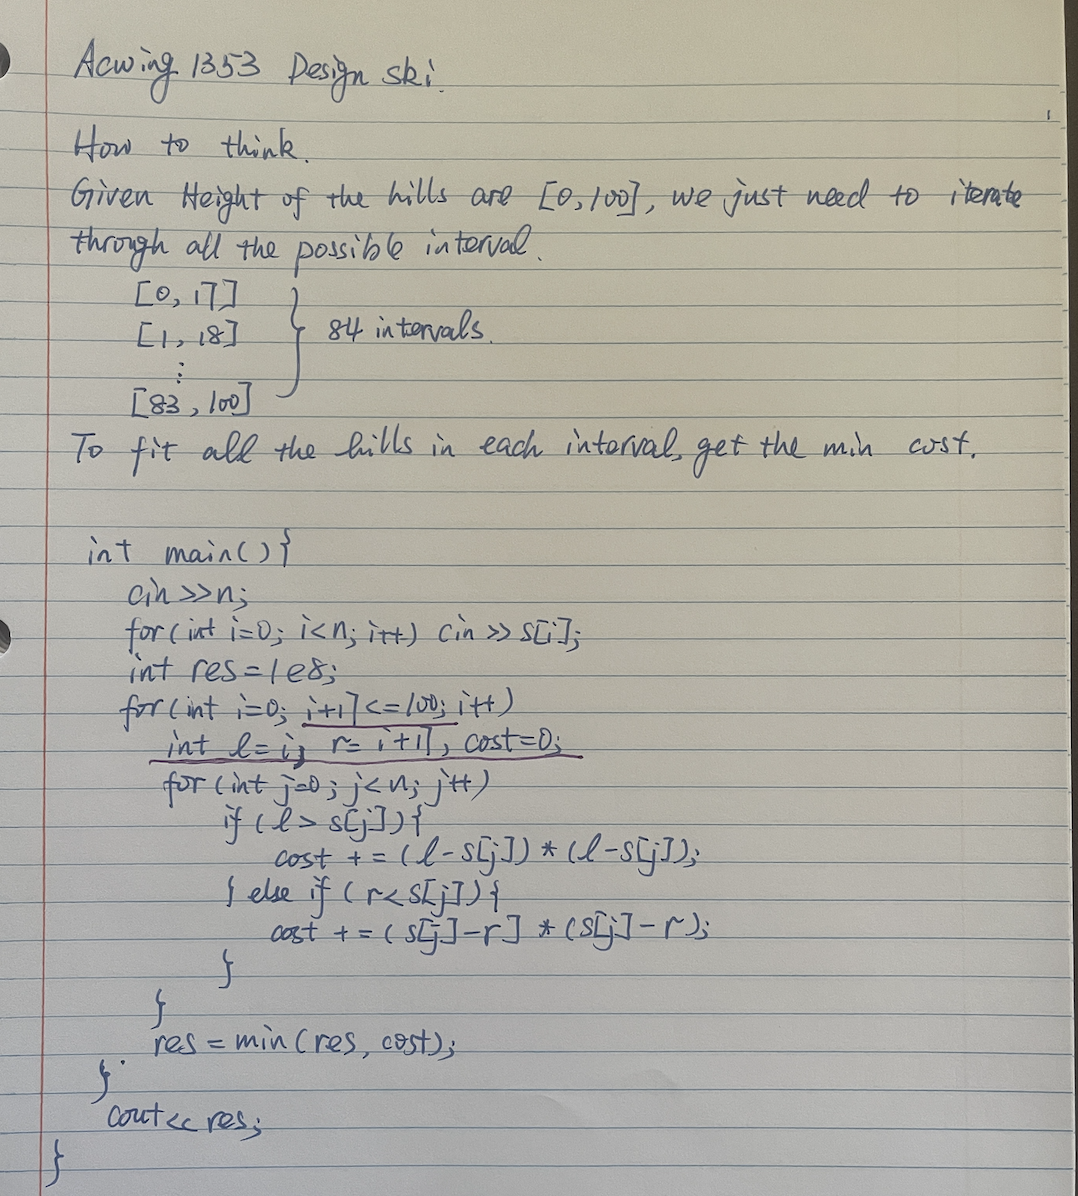 Acwing 1353 Design ski.
How to think.
Given Height of the hills are [0,100], we just need to iterate
through all the possible interval.
[0, 17]
[1, 18] } 84 intervals.
⋮
[83, 100]
To fit all the hills in each interval, get the min cost.
int main(){
cin >>n;
for(int i=0; i<n; i++) cin >> s[i];
int res=1e8;
for(int i=0; i+17<=100; i++)
int l=i, r=i+17, cost=0;
for(int j=0; j<n; j++)
if(l> s[j]){
cost += (l-s[j])*(l-s[j]);
} else if (r<s[j]){
cost += (s[j]-r] * (s[j]-r);
}
}
res = min(res, cost);
}
cout<< res;
}